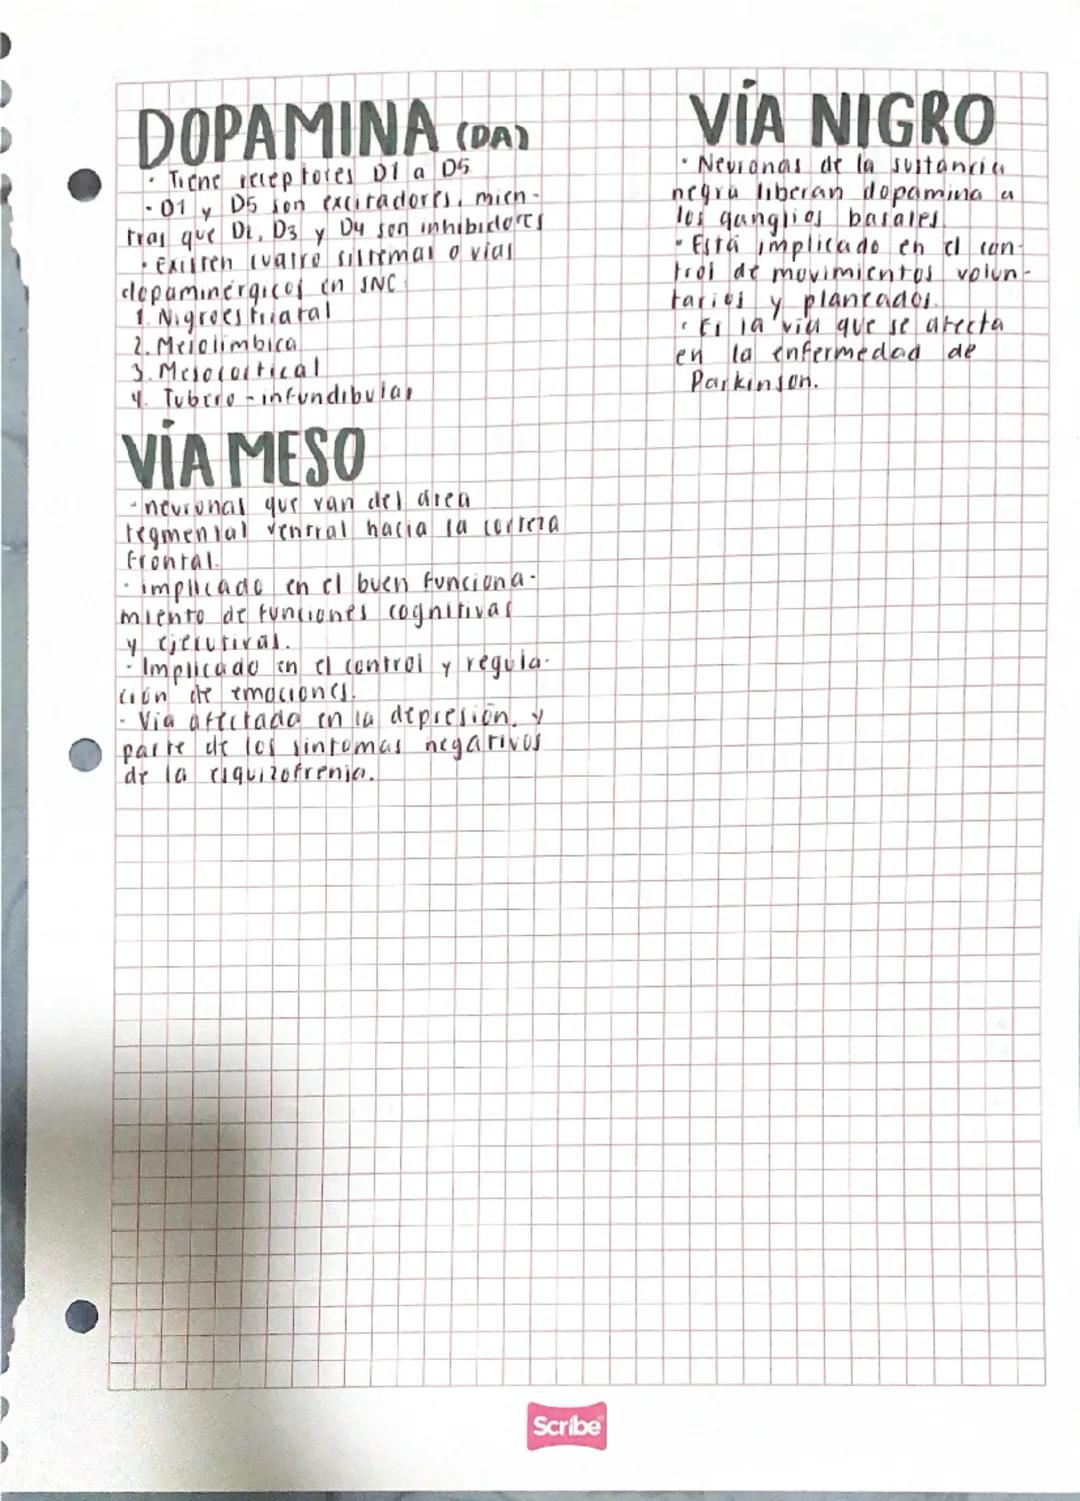 DOPAMINA (DA)
· Tiene receptores D1 a D5
· D1 y D5 son excitadores, mien-
tras que D2, D3 y D4 son inhibidores
· Existen cuatro sistemas o vías
dopaminérgicos en SNC
1. Nigroestriatal
2. Mesolímbica
3. Mesocortical
4. Tubero-infundibular
VÍA MESO
· neuronas que van del área
tegmental ventral hacia la corteza
frontal.
· implicado en el buen funciona-
miento de funciones cognitivas
y ejecutivas.
· Implicado en el control y regula-
ción de emociones.
· Vía afectada en la depresión, y
parte de los síntomas negativos
de la esquizofrenia.
VÍA NIGRO
· Neuronas de la sustancia
negra liberan dopamina a
los ganglios basales
· Está implicado en el con-
trol de movimientos volun-
tarios y planeados.
· Es la vía que se afecta
en la enfermedad de
Parkinson.
Scribe